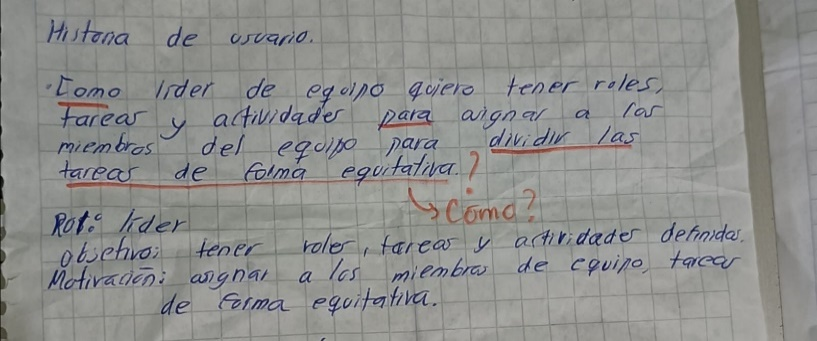 Historia de usuario.
·Como lider de equipo quiero tener roles,
tareas y actividades para asignar a los
miembros del equipo para dividir las
tareas de forma equitativa.?
↳ Cómo?
Rol: lider
objetivo: tener roles, tareas y actividades definidas.
Motivación: asignar a los miembros de equipo, tareas
de forma equitativa.